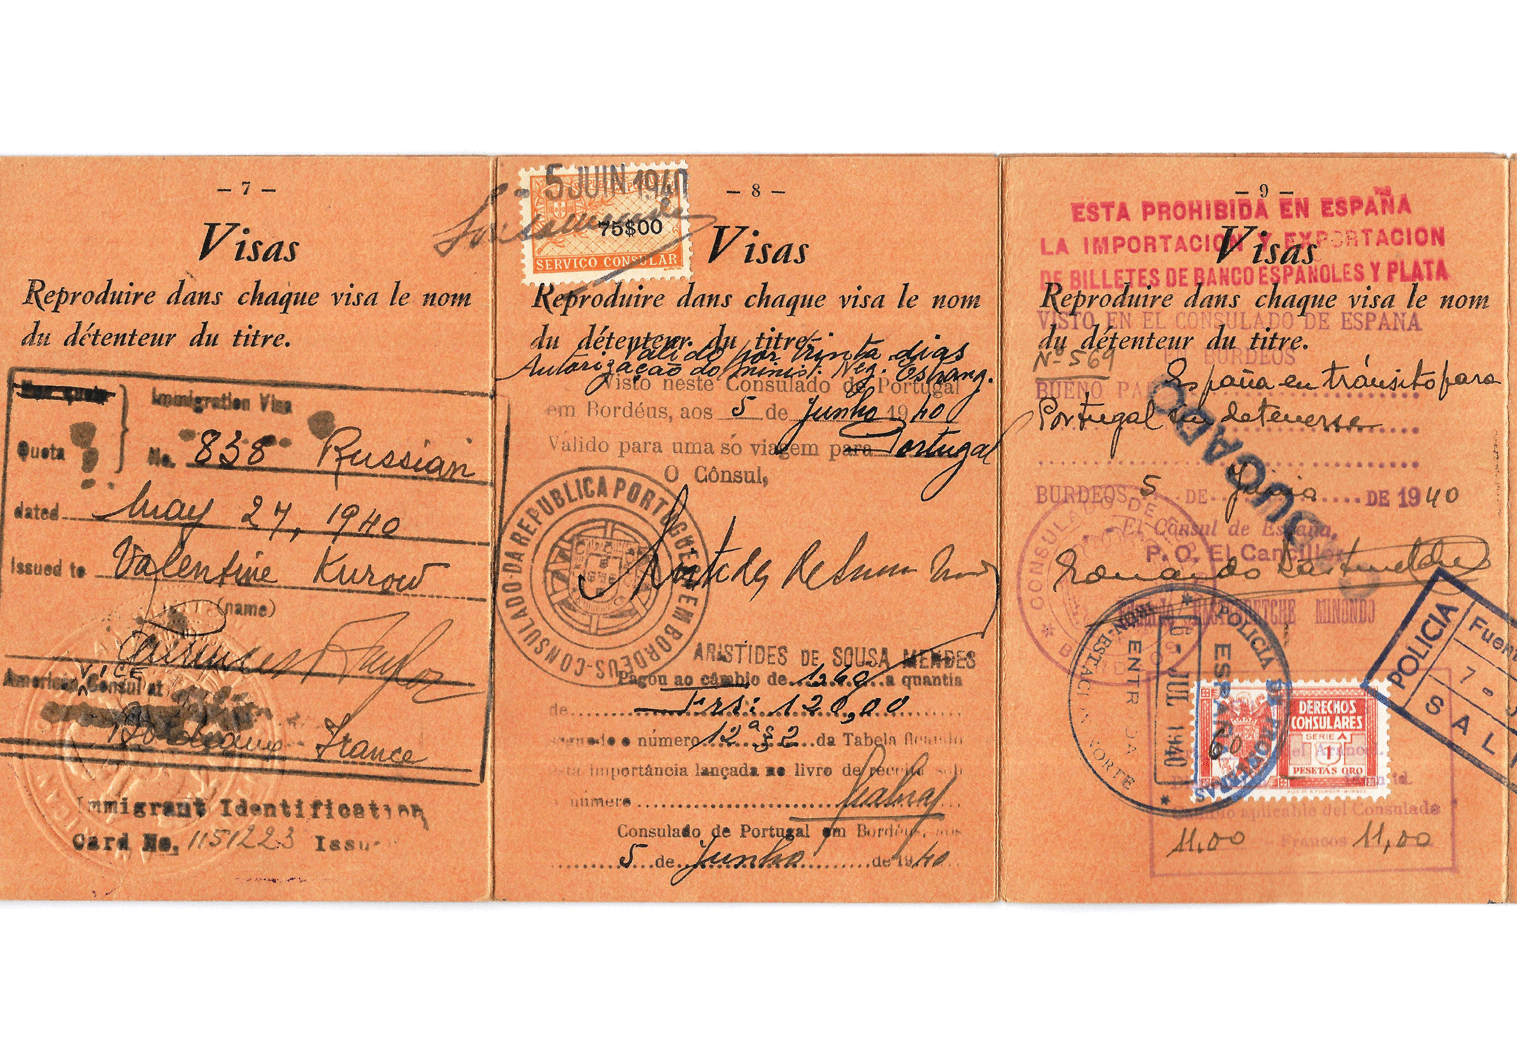 – 7 –
Visas
Reproduire dans chaque visa le nom
du détenteur du titre.
Immigration Visa
Quota
No. 838 Russian
dated May 27, 1940
Issued to Valentine Kurow
(name)
VICE
American Consul at
Bordeaux, France
Immigrant Identification
Card No. 1151223 Issu
5 JUIN 1940
75$00
SERVIÇO CONSULAR
– 8 –
Visas
Reproduire dans chaque visa le nom
du détenteur du titre.
Valido por trinta dias
Autorização do Minist. Neg. Estrang.
Visto neste Consulado de Portugal
em Bordéus, aos 5 de Junho 1940
Válido para uma só viagem para Portugal
O Cônsul,
CONSULADO DA REPUBLICA PORTUGUEZA EM BORDEUS
Aristides de Sousa Mendes
ARISTIDES DE SOUSA MENDES
Pagou ao câmbio de 1260 a quantia
de Frs: 120,00
o número 12ª da Tabela
esta importância lançada no livro de receita sob
número
Consulado de Portugal em Bordéus, aos
5 de Junho de 1940
– 9 –
ESTA PROHIBIDA EN ESPAÑA
LA IMPORTACION Y EXPORTACION
DE BILLETES DE BANCO ESPAÑOLES Y PLATA
Visas
Reproduire dans chaque visa le nom
du détenteur du titre.
VISTO EN EL CONSULADO DE ESPAÑA
EN BURDEOS
Nº 569
BUENO PARA España en tránsito para
Portugal sin detenerse
BURDEOS 5 DE Junio DE 1940
El Cónsul de España,
P. O. El Canciller
CONSULADO DE
POLICIA DE FRONTERAS
IRUN-ESTACION NORTE
ENTRADA
ESPAÑA
6 - JUL 1940
DERECHOS
CONSULARES
SERIE A
1
PESETAS ORO
POLICIA
Fuen
7 -
SAL
Cambio aplicable del Consulado
11,00 Francos 11,00